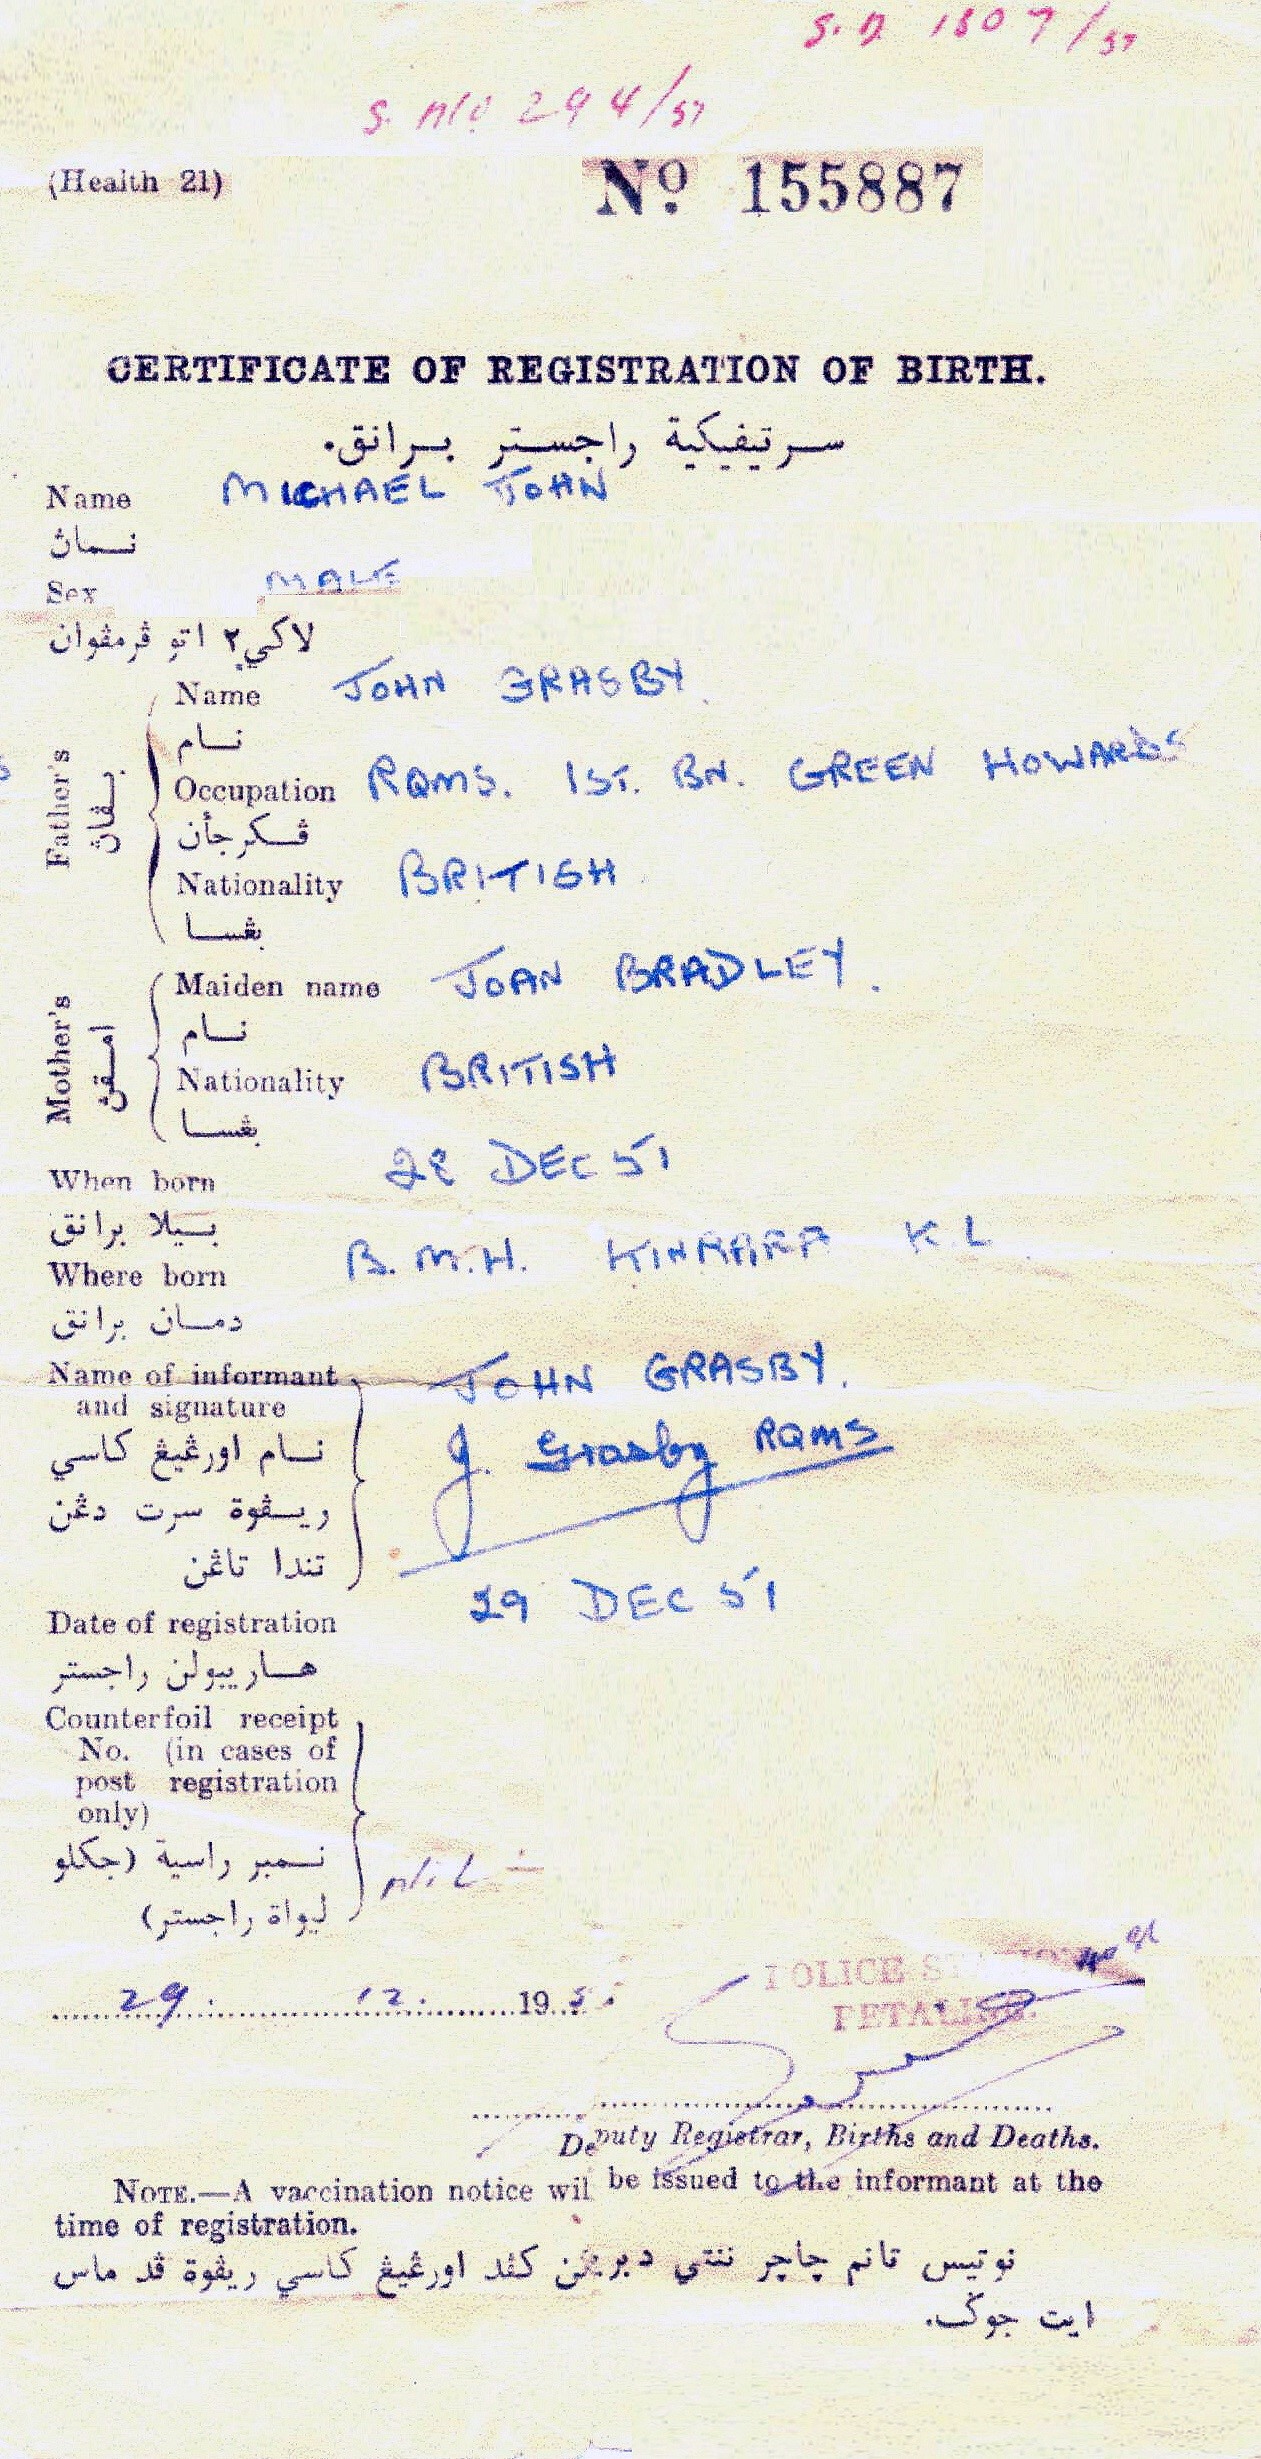 S. D 1807/57
S. No 294/57
(Health 21)
No. 155887
CERTIFICATE OF REGISTRATION OF BIRTH.
سرتيفيكية راجستر برانق.
Name MICHAEL JOHN
نمـاڽ
Sex MALE
لاكي٢ اتو ڤرمڤوان
Father's
بڤاڽ
Name JOHN GRASBY
نـام
Occupation RQMS. 1ST. BN. GREEN HOWARDS
ڤكرجأن
Nationality BRITISH
بڠسا
Mother's
امقڽ
Maiden name JOAN BRADLEY.
نـام
Nationality BRITISH
بڠسا
When born 28 DEC 51
بيلا برانق
Where born B.M.H. KINRARA K L
دمـان برانق
Name of informant and signature JOHN GRASBY.
J. Grasby RQMS
نـام اورڠيڠ كاسي
ريڤوة سرت دڠن
تندا تاڠن
Date of registration 29 DEC 51
هـاريبولن راجستر
Counterfoil receipt
No. (in cases of
post registration
only)
نمبر راسية (جكلو
ليواة راجستر)
nil
29. 12. 195
POLICE STATION
PETALING.
Deputy Registrar, Births and Deaths.
NOTE.—A vaccination notice wil be issued to the informant at the
time of registration.
نوتيس تانم چاچر ننتي دبريڠن كڤد اورڠيڠ كاسي ريڤوة ڤد ماس
ايت جوݢ.